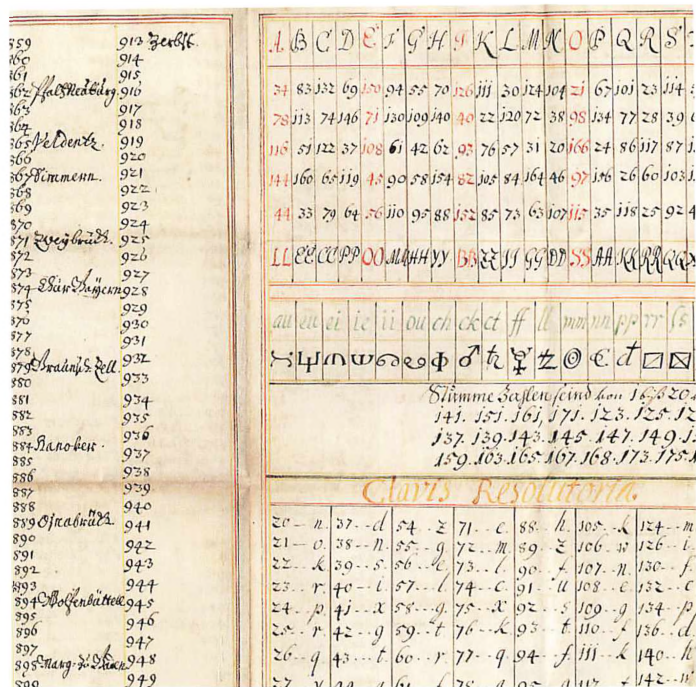 859
860
861
862 Pfalz Neuburg
863
864
865 Veldentz
866
867 Simmern.
868
869
870
871 Zweybrück.
872
873
874 Chür Bayern
875
876
877
878
879 Braunsch. Zell.
880
881
882
883
884 Hanover.
885
886
887
888
889 Osnabrück.
890
891
892
893
894 Wolfenbüttel
895
896
897
898
899
913 Zerbst.
914
915
916
917
918
919
920
921
922
923
924
925
926
927
928
929
930
931
932
933
934
935
936
937
938
939
940
941
942
943
944
945
946
947
948
949
A B C D E F G H I K L M N O P Q R S
34 83 132 69 150 94 55 70 126 111 30 124 104 21 67 101 23 114
78 113 74 146 71 130 109 140 40 22 120 72 38 98 134 77 28 39
116 51 122 37 108 61 42 62 93 76 57 31 20 166 24 86 117 87
144 160 65 119 45 90 58 154 82 105 84 164 46 97 156 26 60 103
44 33 79 64 56 110 95 88 152 85 73 63 107 115 35 118 25 92
LL EE CC PP OO MM HH YY BB ZZ II GG DD SS AA KK RR QQ
au eu ei ie ii ou ch ck ct ff ll mm nn pp rr ss
Stumme Zahlen seind von 1 biß 20.
141. 151. 161. 171. 123. 125. 12
137. 139. 143. 145. 147. 149. 1
159. 163. 165. 167. 168. 173. 175. 1
Clavis Resolutoria.
20--n. 37--d 54--z 71--e. 88--h. 105--k 124--m
21--o. 38--n. 55--g 72--m. 89--z 106--w 126--i
22--k 39--s 56--e 73--l 90--f 107--n. 130--f
23--r. 40--i 57--l 74--c. 91--u 108--e 132--c
24--p 41--x 58--g. 75--x 92--s 109--g 134--p
25--r 42--g 59--t 76--k 93--t. 110--f 136--d
26--q 43--t 60--r 77--q 94--f 111--k 140--h